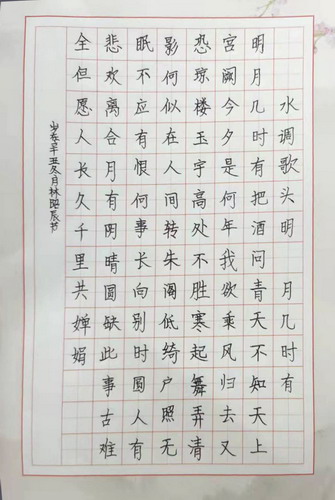 水调歌头明 月几时有
明月几时有把酒问青天不知天上
宫阙今夕是何年我欲乘风归去又
恐琼楼玉宇高处不胜寒起舞弄清
影何似在人间转朱阁低绮户照无
眠不应有恨何事长向别时圆人有
悲欢离合月有阴晴圆缺此事古难
全但愿人长久千里共婵娟
岁在辛丑冬月林辰书